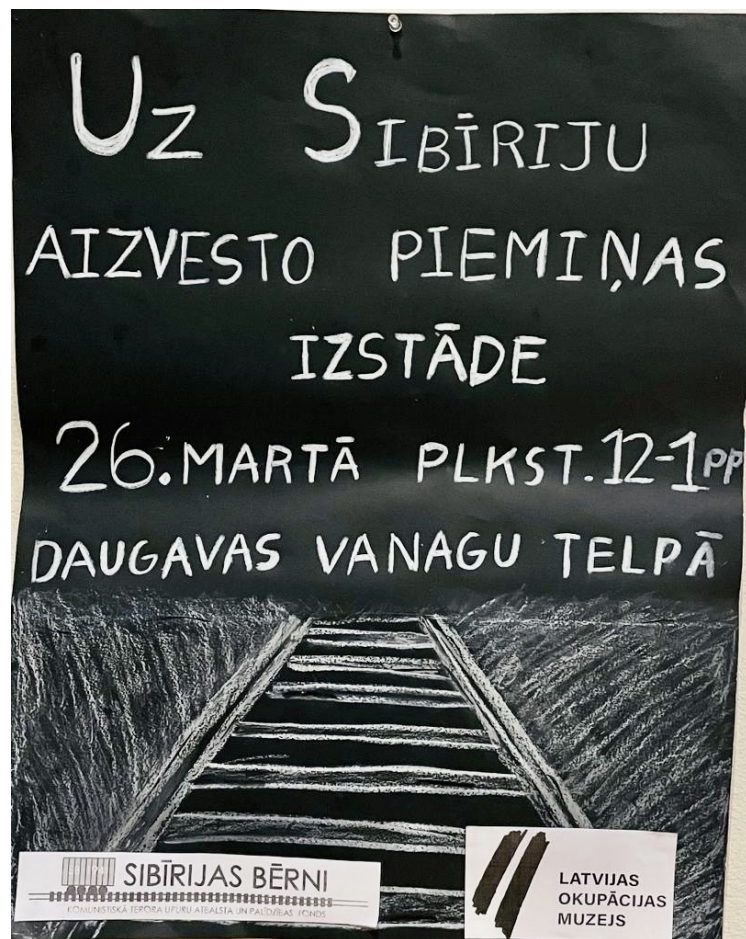 Uz SIBĪRIJU
AIZVESTO PIEMIŅAS
IZSTĀDE
26. MARTĀ PLKST. 12-1 PP
DAUGAVAS VANAGU TELPĀ
SIBĪRIJAS BĒRNI
KOMUNISTISKĀ TERORA UPURU ATBALSTA UN PALĪDZĪBAS FONDS
LATVIJAS
OKUPĀCIJAS
MUZEJS